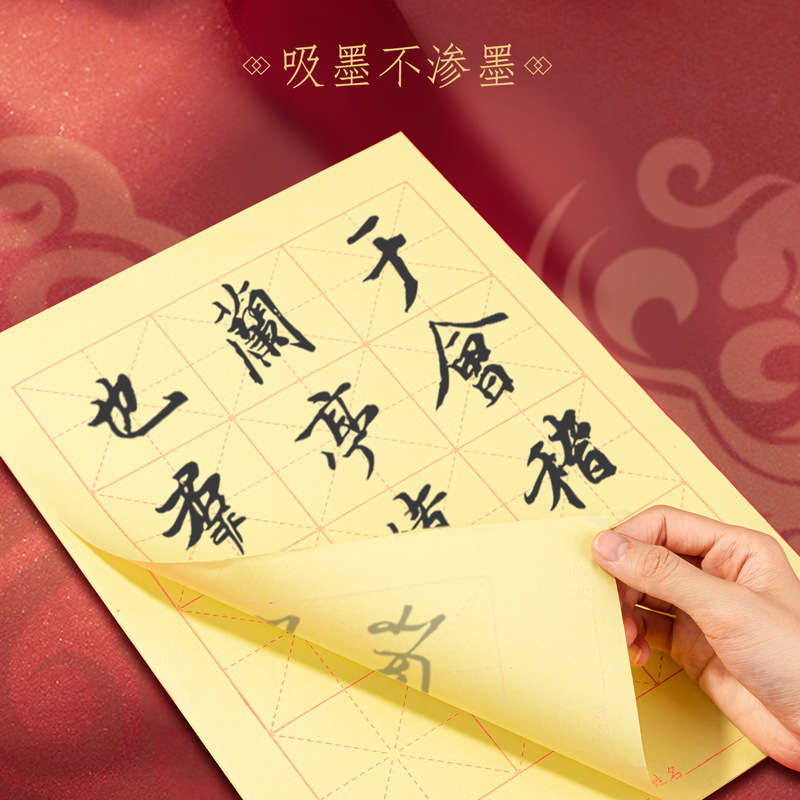 吸墨不渗墨
于會稽
蘭亭
也羣
姓名